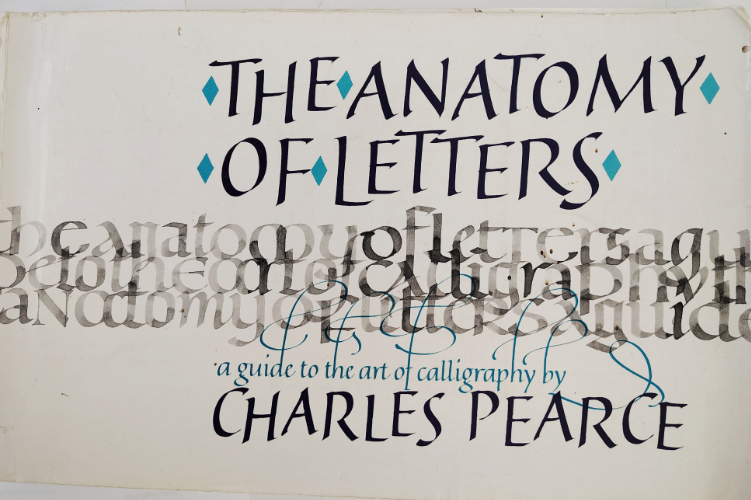 THE ANATOMY
OF LETTERS
the anatomy of letters a gui
de to the art of calligraphy th
anatomy of letters a guide
a guide to the art of calligraphy by
CHARLES PEARCE